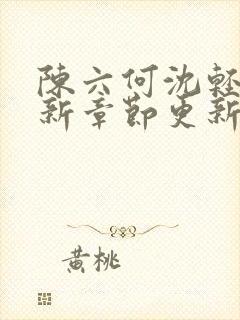 陳六何沈輕
新章節更新
黃桃